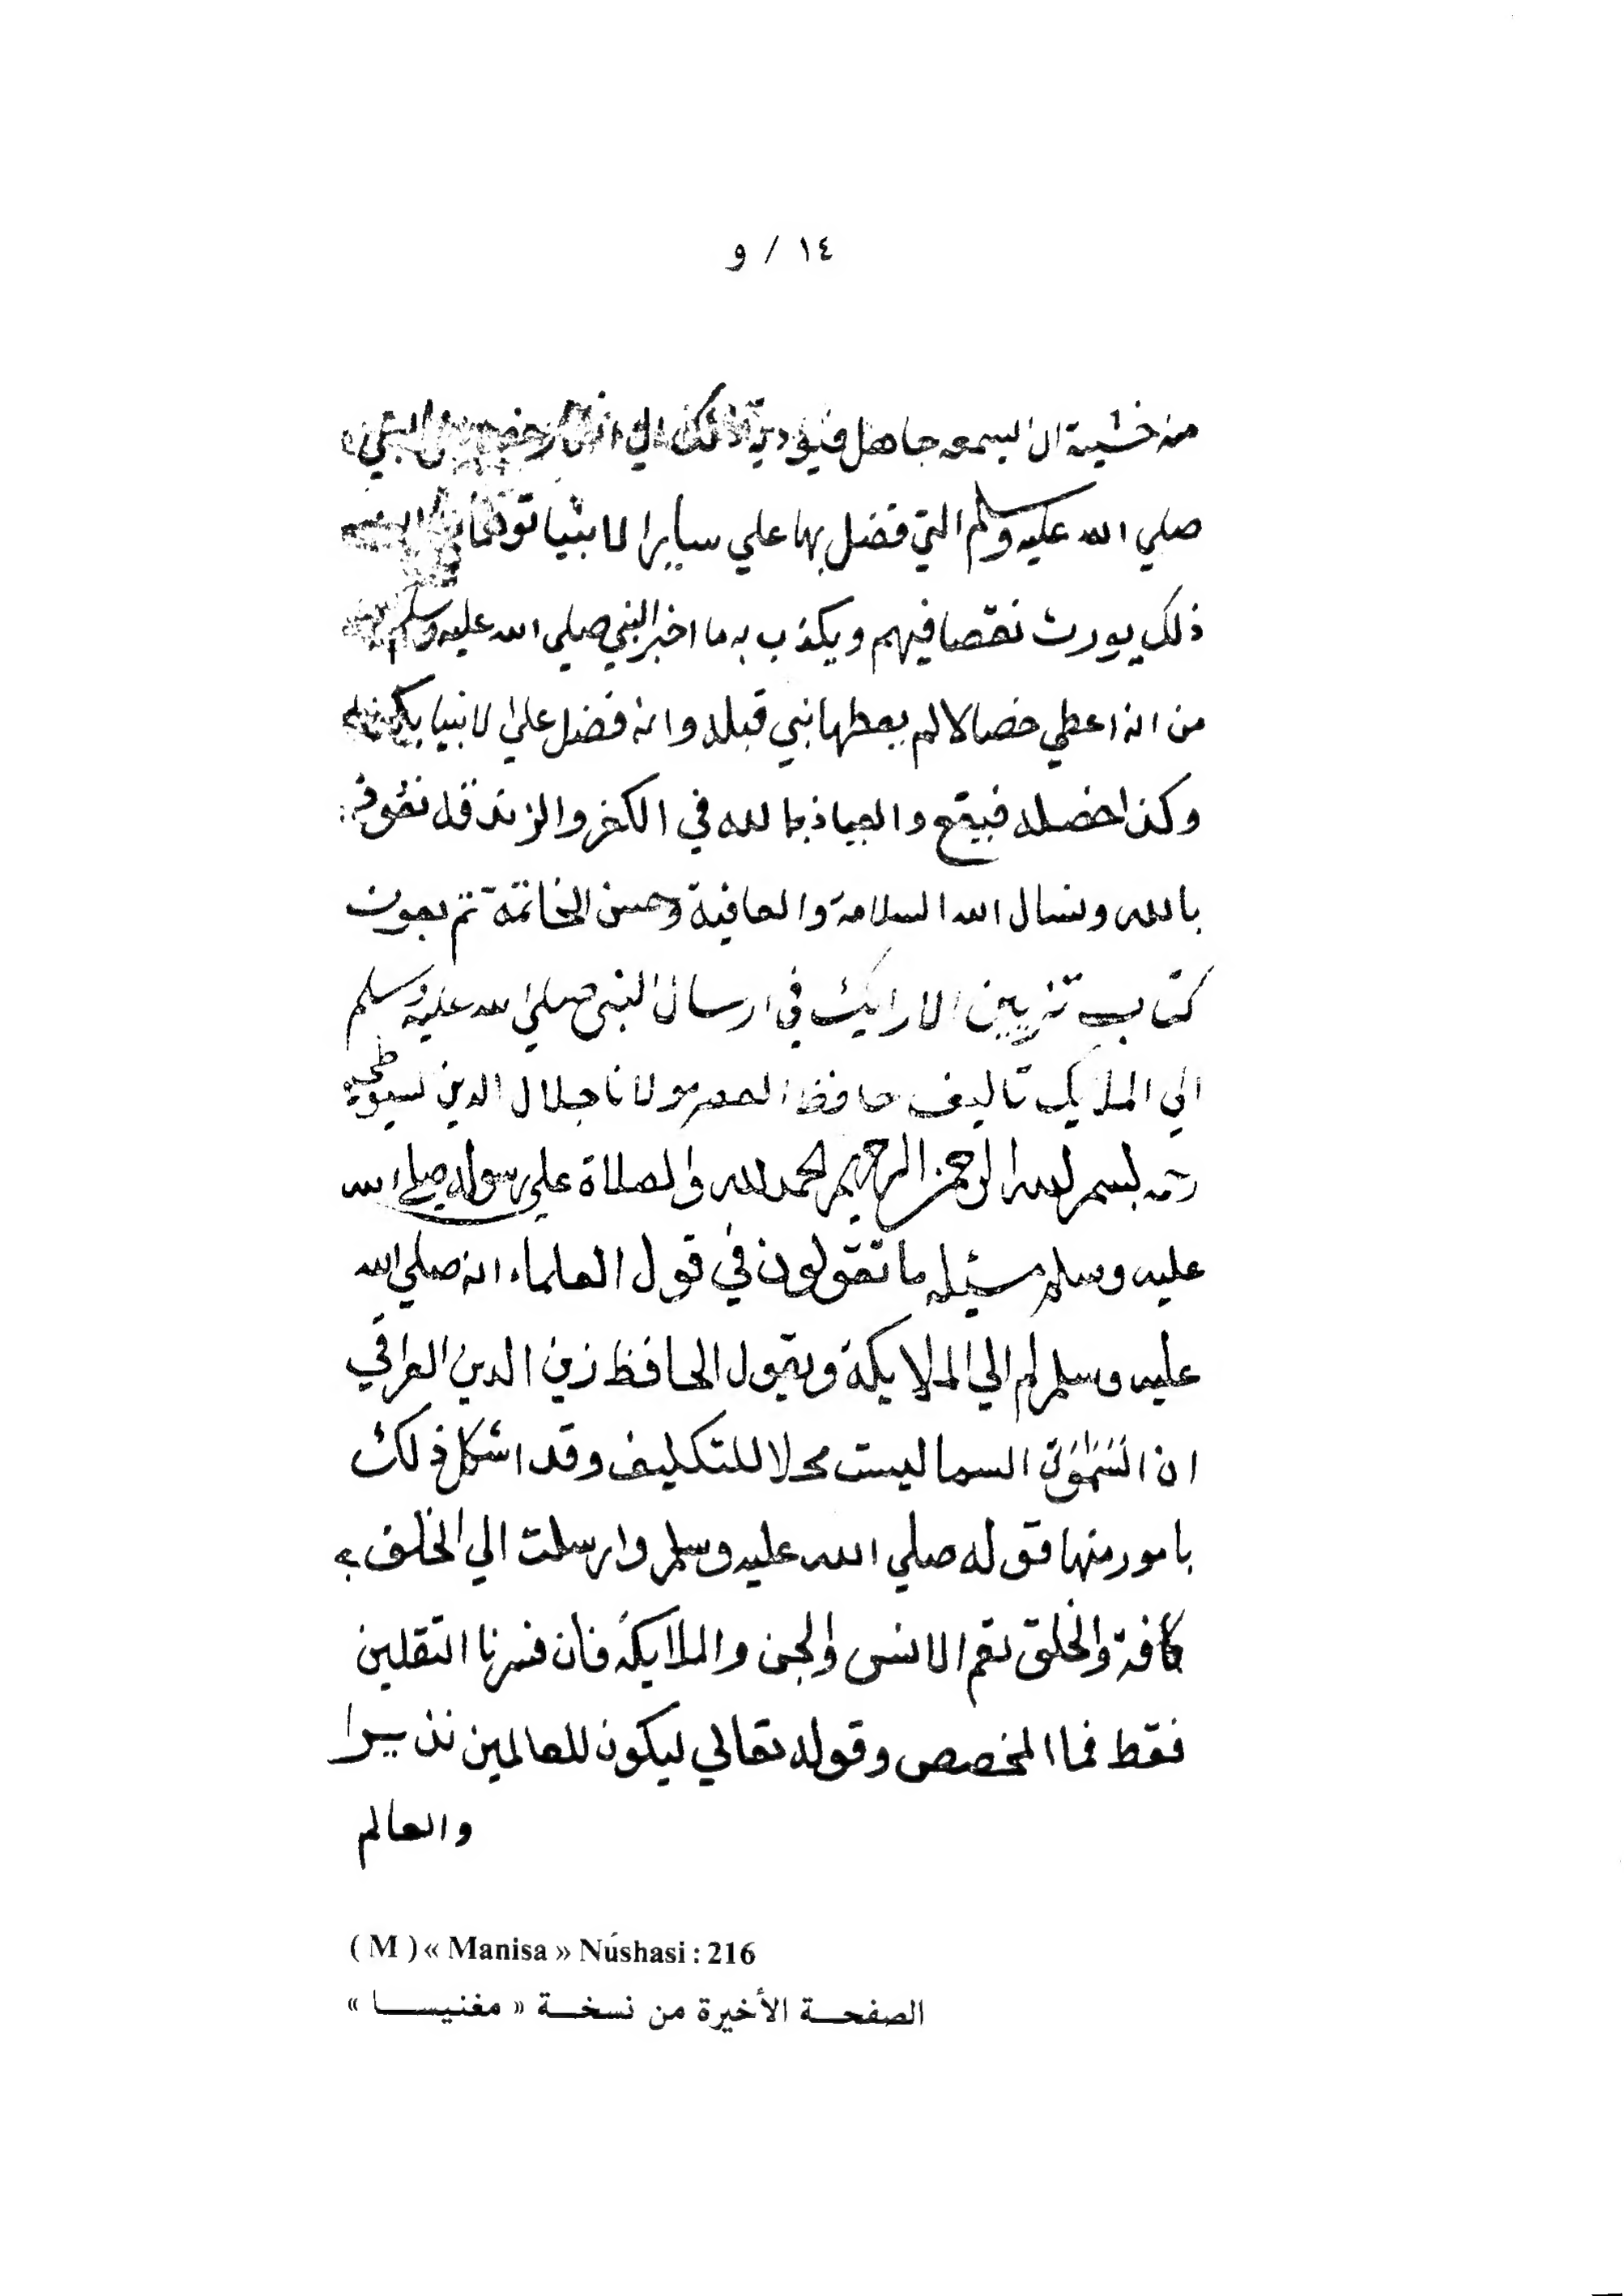 ١٤ / و
منه خشية ان يسمعه جاهل فيؤديه ذلك الي النبي
صلي الله عليه وسلم التي فضل بها علي ساير الانبيا توهما
ذلك يورث نقصا فيهم ويكذب به ما اخبر النبي صلي الله عليه وسلم
من انه اعطي خصالا لم يعطها نبي قبله وانه فضل علي الانبيا بكذا
وكذا خصله فيقع والعياذ بالله في الكفر والزندقه نعوذ
بالله ونسال الله السلامة والعافية وحسن الخاتمة تم بعون
كتاب تزيين الارايك في ارسال النبي صلي الله عليه وسلم
الي الملايك تاليف حافظ العصر مولانا جلال الدين لسيوطي
رحمه بسم الله الرحمن الرحيم الحمد لله والصلاة علي رسوله صلي الله
عليه وسلم مسئله ما تقولون في قول العلماء انه صلي الله
عليه وسلم لم الي الملايكة ويقول الحافظ زين الدين العراقي
ان السما ليست محلا للتكليف وقد اشكل ذلك
بامور منها قوله صلي الله عليه وسلم وارسلت الي الخلق
كافة والخلق تعم الانس والجن والملايكة فان فسرنا الثقلين
فقط فما المخصص وقوله تعالي ليكون للعالمين نذيرا
والعالم
( M ) « Manisa » Núshasi : 216
الصفحة الأخيرة من نسخة « مغنيسا »